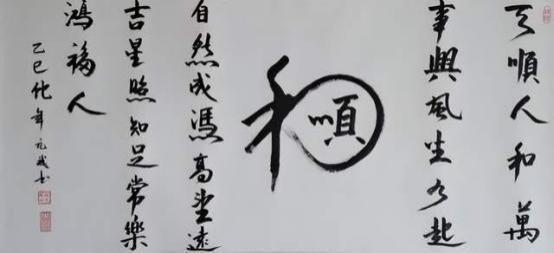 天順人和萬
事興風生水起
和順
自然成馮高望遠
吉星照知足常樂
鴻福人
乙巳蛇年